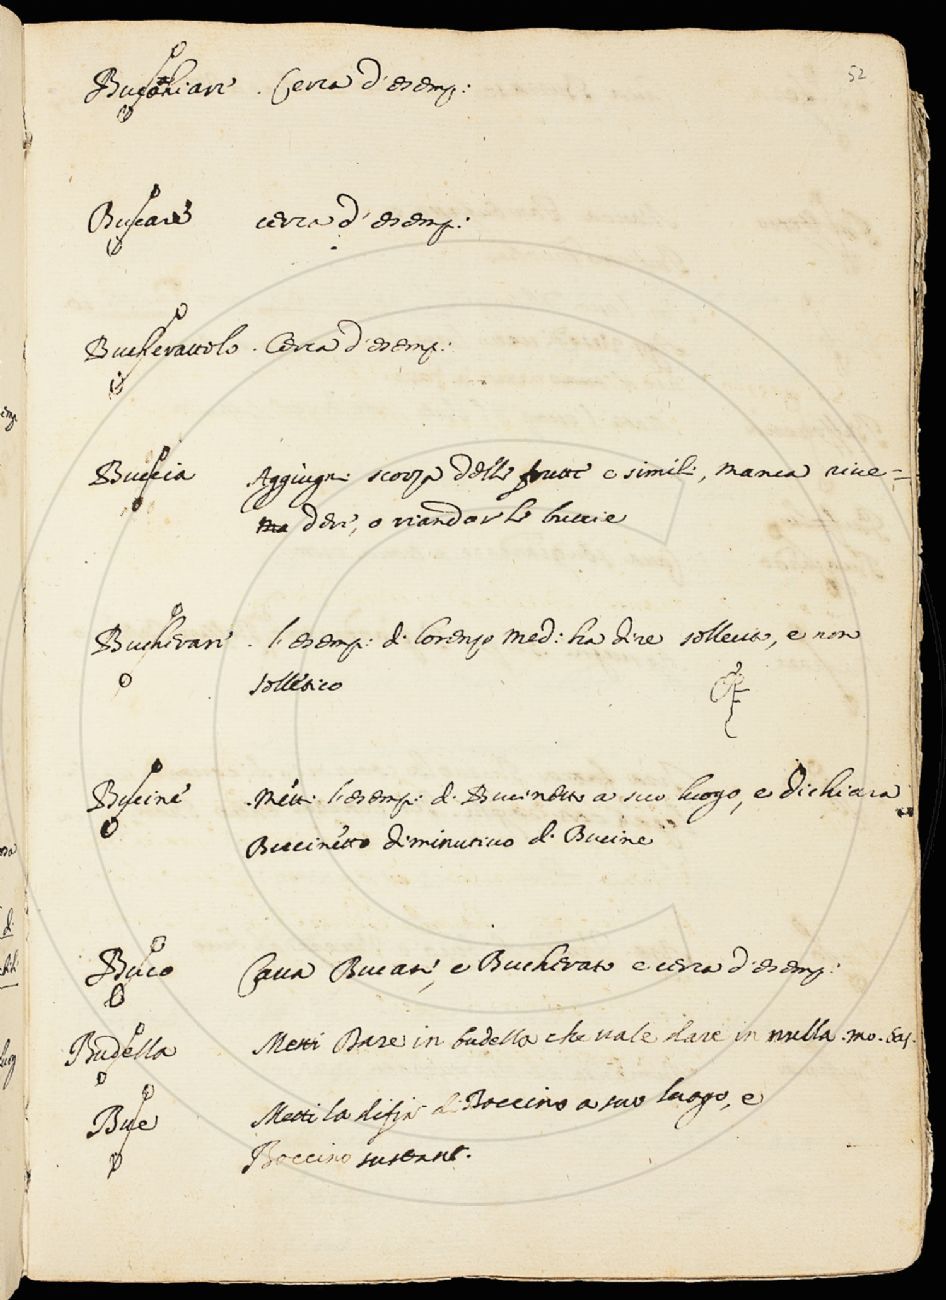 52
Bucchiare. Cerca d'esemp:
Bucare cerca d'esemp:
Bucherattolo. Cerca d'esemp:
Buccia Aggiugni scorza delle frutte e simili, manca rive=
dere, o riandar le buccie
Bucherare. l'esemp: di Lorenzo Med: ha dire sollecito, e non
solletico
Bucine. Metti l'esemp: di Bucinetto a suo luogo, e dichiara
Bucinetto diminutivo di Bucine
Buco Cava Bucare, e Bucherato e cerca d'esemp:
Budella Metti Dare in budella che vale dare in nulla. mo. bas.
Bue Metti la difin: di Boccino a suo luogo, e
Boccino sustant.